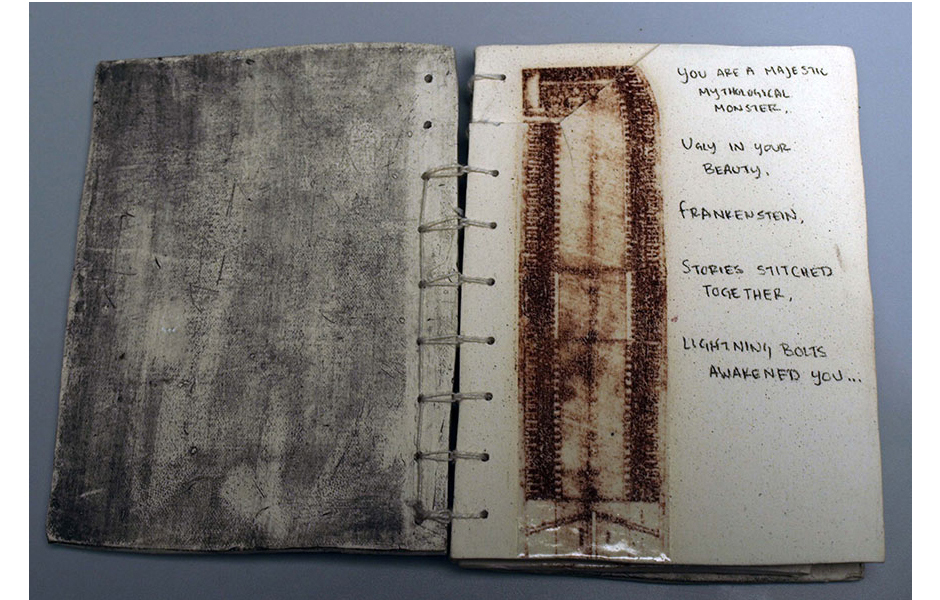 YOU ARE A MAJESTIC
MYTHOLOGICAL
MONSTER.
UGLY IN YOUR
BEAUTY.
FRANKENSTEIN,
STORIES STITCHED
TOGETHER,
LIGHTNING BOLTS
AWAKENED YOU...